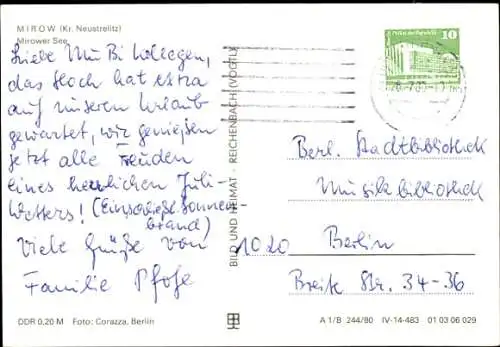 MIROW (Kr. Neustrelitz)
Mirower See
Liebe MuBi Kollegen,
das Hoch hat extra
auf unseren Urlaub
gewartet, wir genießen
jetzt alle Freuden
eines herrlichen Juli-
Wetters! (Einschließl. Sonnen-
brand)
Viele Grüße von
Familie
DDR 0,20 M Foto: Corazza, Berlin
BILD UND HEIMAT · REICHENBACH (VOGTL)
10
Berl. Stadtbibliothek
Musikbibliothek
1020 Berlin
Breite Str. 34-36
A 1/B 244/80 IV-14-483 01 03 06 029